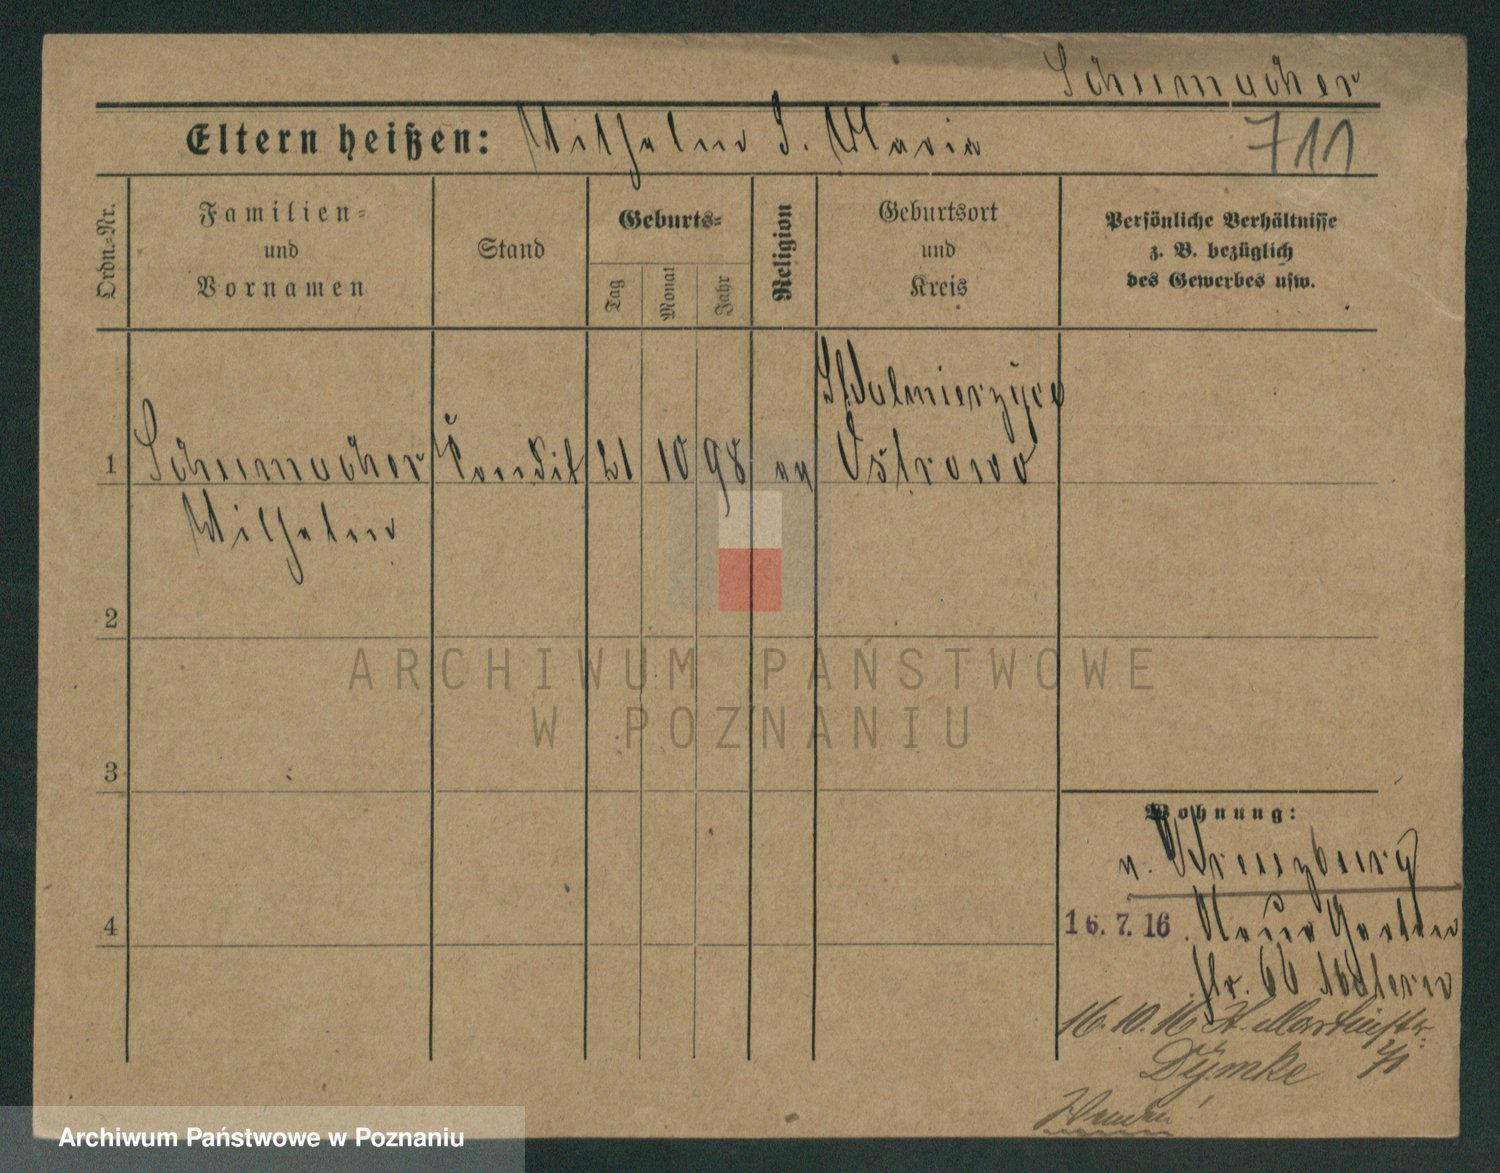 Schumacher
Eltern heißen: Wilhelm u. Maria
711
Ordn.-Nr.
Familien-
und
Vornamen
Stand
Geburts-
Tag
Monat
Jahr
Religion
Geburtsort
und
Kreis
Persönliche Verhältnisse
z. B. bezüglich
des Gewerbes usw.
Adelnierzyce
1 Schumacher Kondit 21 10 98 ev Ostrowo
Wilhelm
2
ARCHIWUM PAŃSTWOWE
W POZNANIU
3
Wohnung:
v. Kreuzburg
4
16.7.16. Neue Garten
str. 66
16.10.16 St. Martinstr.
Dymke
Archiwum Państwowe w Poznaniu